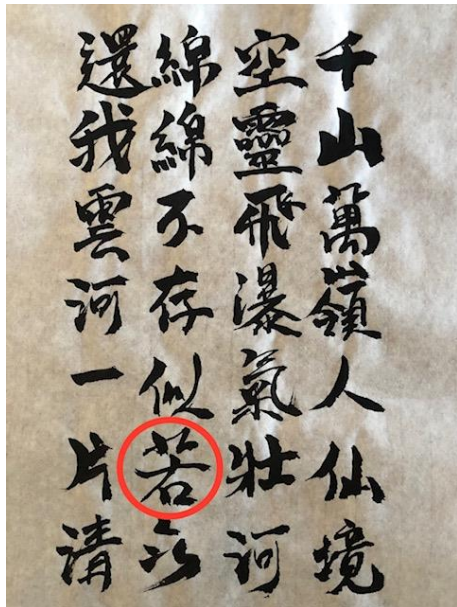 千山萬嶺人仙境
空靈飛瀑氣壯河
綿綿不存似若
還我雲河一片清